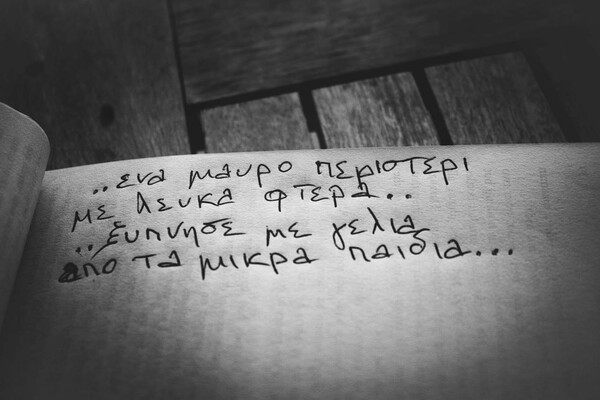 ..ενα μαυρο περιστερι
με λευκα φτερα..
..ξυπνησε με γελια
απο τα μικρα παιδια...